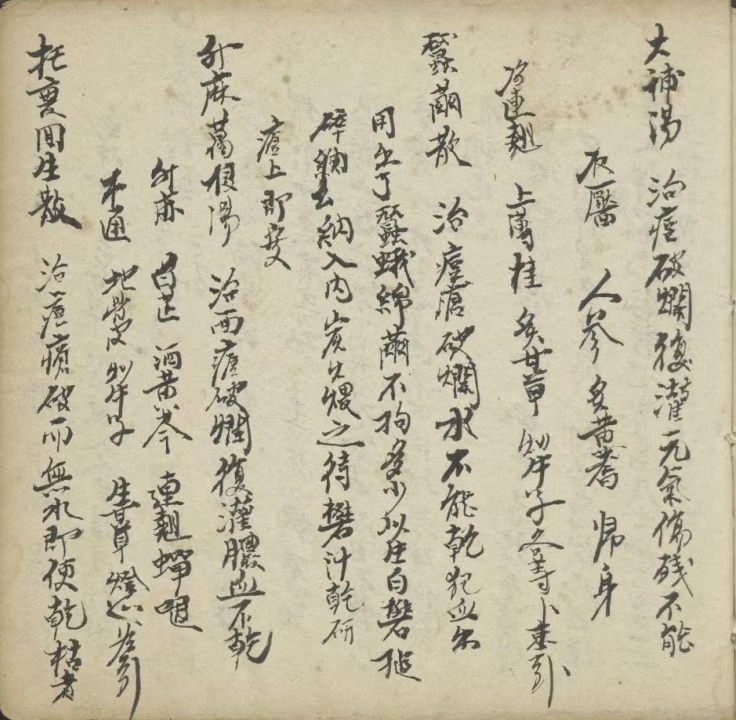 大補湯 治痘破爛復灌元氣傷殘不能
灰靨 人參 炙黃蓍 歸身
連翹 上薄桂 炙甘草 牛子
蠶繭散 治痘瘡破爛水不能乾
用出了蠶蛾綿繭不拘多少以生白礬搥
碎納入內炭火煨之待礬汁乾研
瘡上即安
升麻葛根湯 治面瘡破爛復灌膿血不乾
升麻 白芷 酒黃芩 連翹 蟬
木通 地骨皮 牛子 生甘草 燈心
托裏回生散 治痘瘡破而無水即便乾枯者